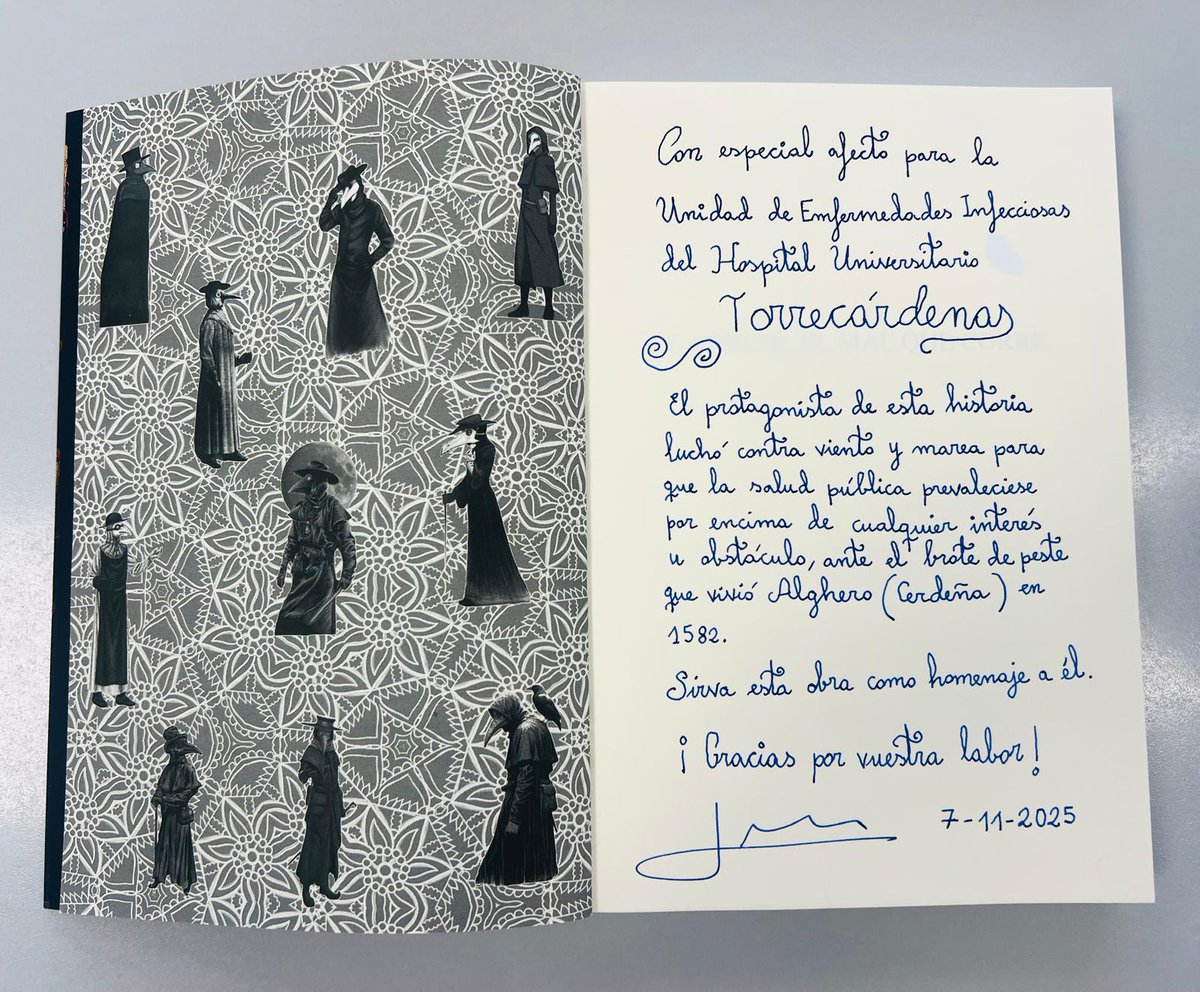 Con especial afecto para la
Unidad de Enfermedades Infecciosas
del Hospital Universitario
Torrecárdenas
El protagonista de esta historia
luchó contra viento y marea para
que la salud pública prevaleciese
por encima de cualquier interés
u obstáculo, ante el brote de peste
que vivió Alghero (Cerdeña) en
1582.
Sirva esta obra como homenaje a él.
¡Gracias por vuestra labor!
7-11-2025